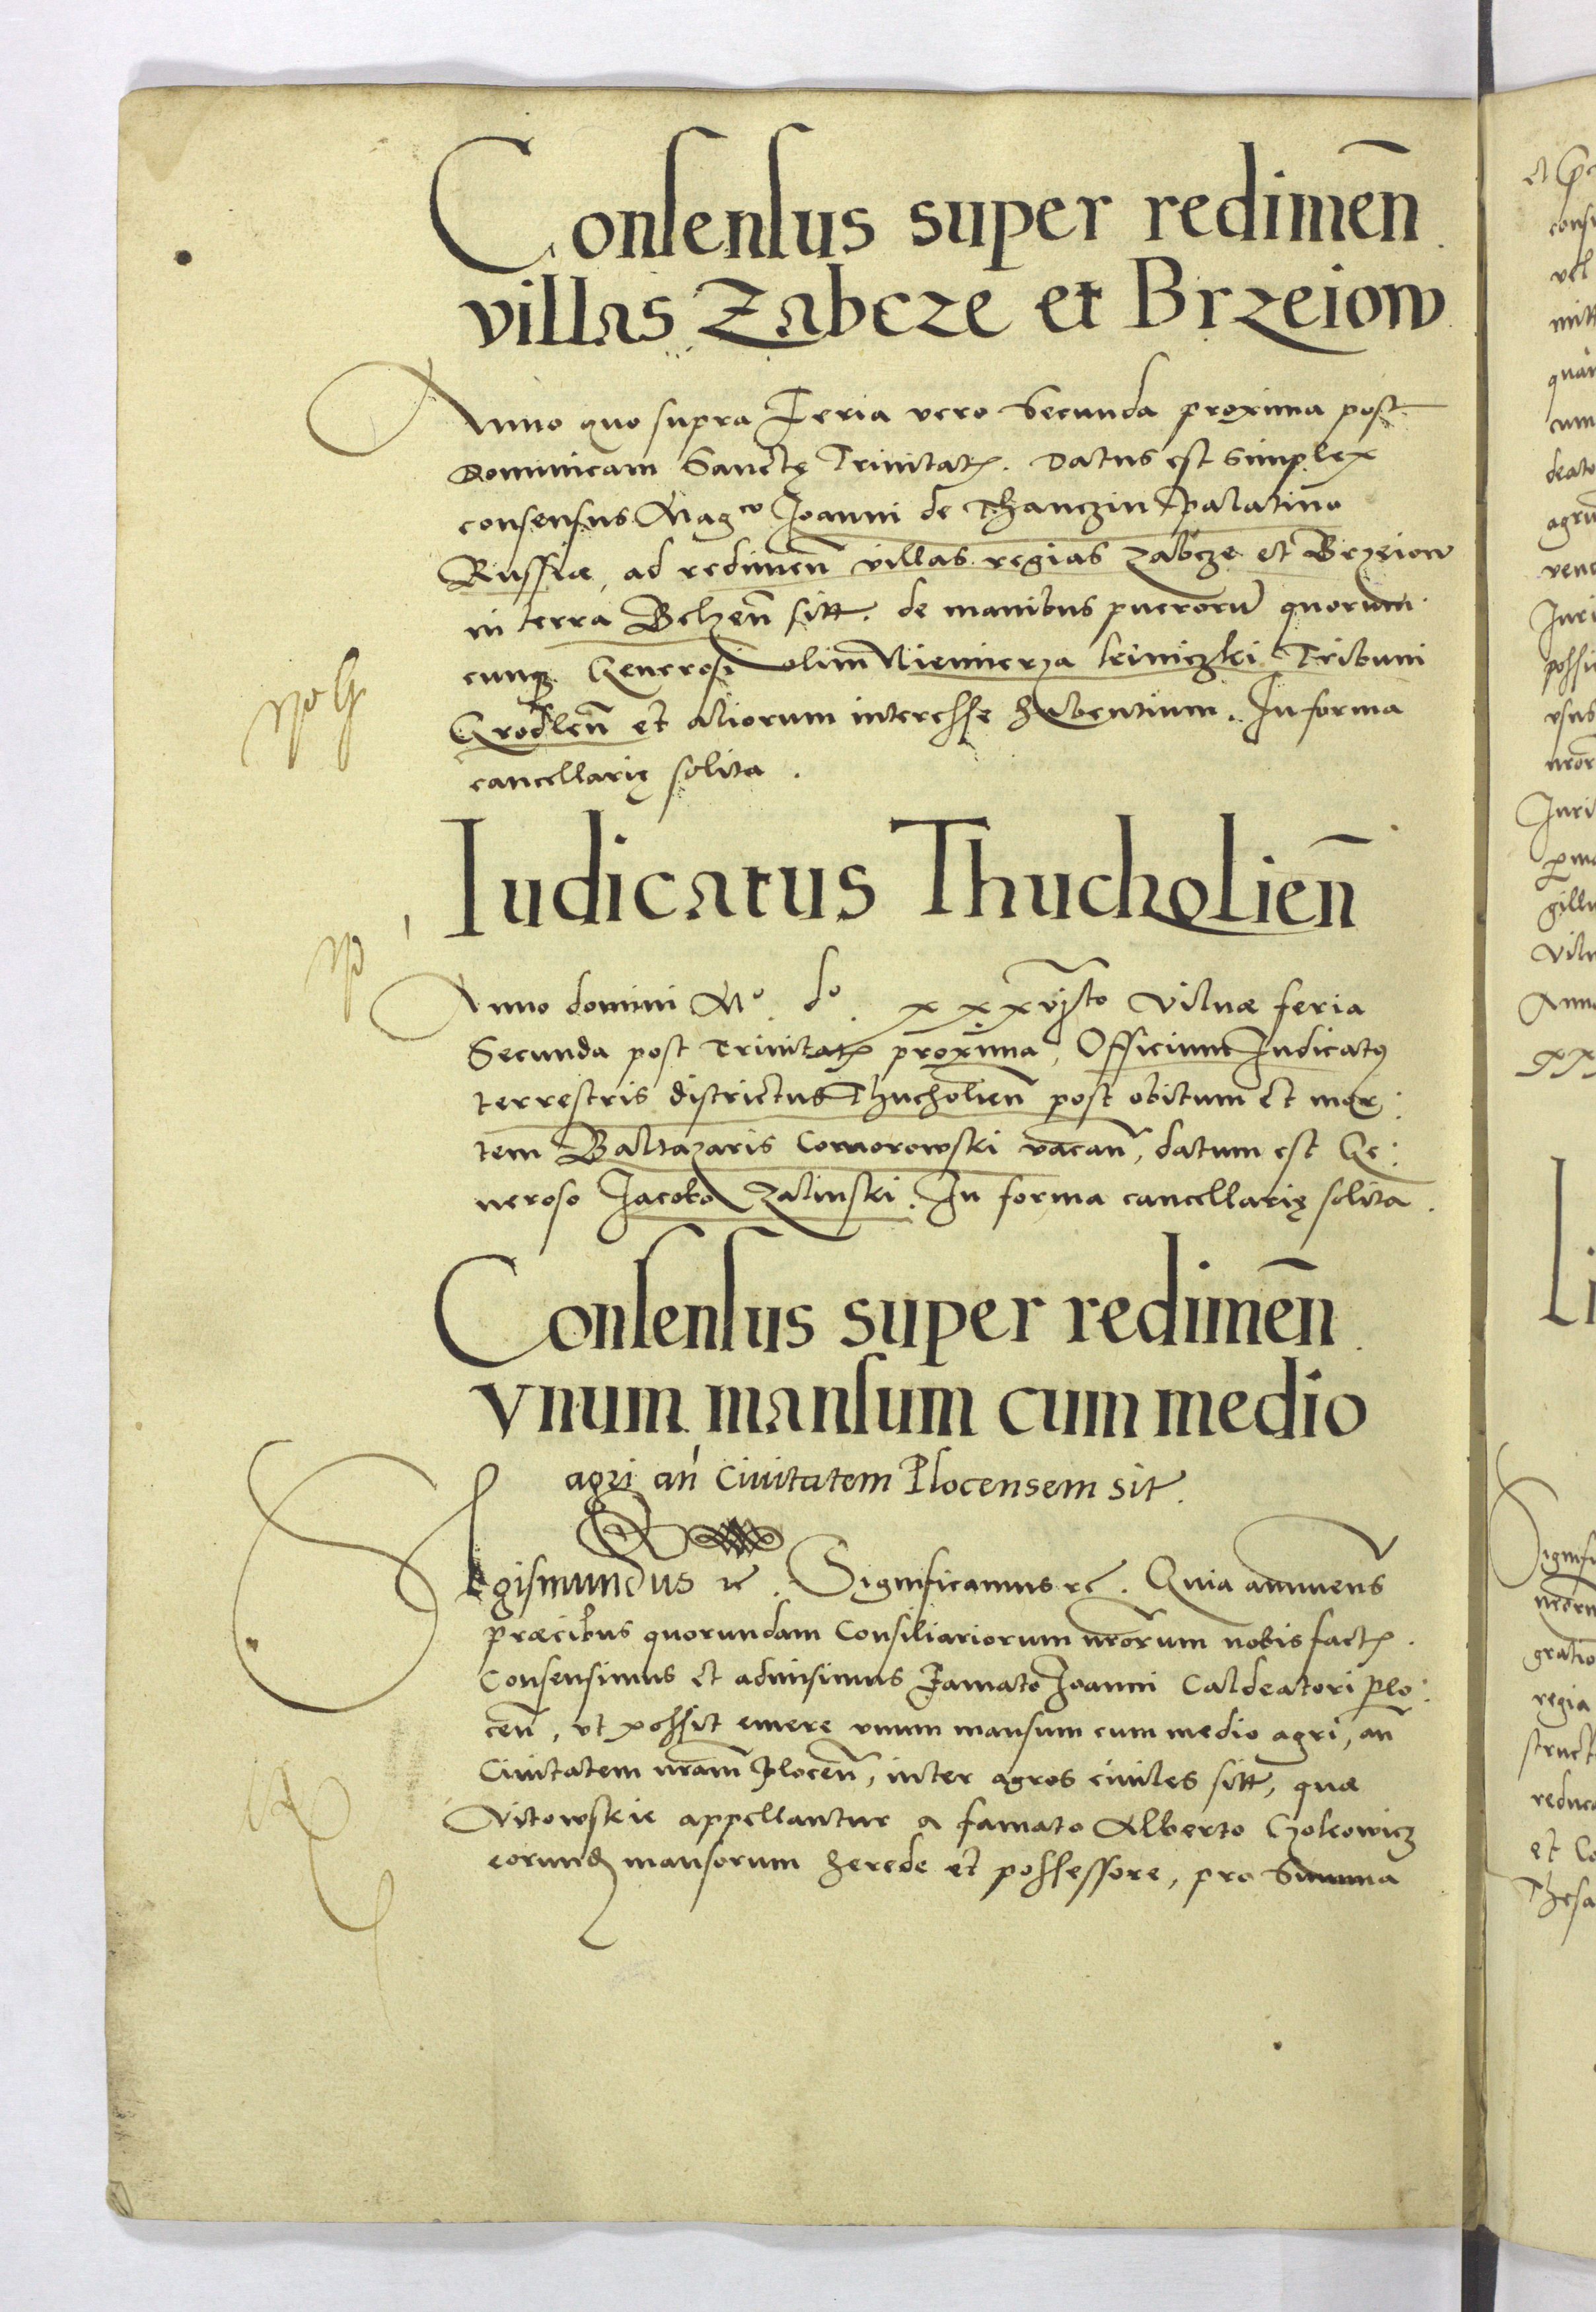 Consensus super redimen̄
villas Zabcze et Brzeiow
Anno quo supra Feria vero Secunda proxima post
Dominicam Sanctę Trinitatꝭ. Datus est simplex
consensus Magco Joanni de Thanczin palatino
Russiæ, ad redimen̄ villas regias Zabcze et Brzeiow
in terra Belzen̄ sitt. de manibus puerorū quorum
cunqꝫ Generosi olim Niemierza Kriniczki Tribuni
Grodlen̄ et aliorum interesse habentium. In forma
cancellarię solita.
Iudicatus Thucholien̄
Anno domini Mo. do. xxxvjto Vilnæ feria
Secunda post Trinitatꝭ proxima, Officium Judicatꝰ
terrestris districtus Thucholien̄ post obitum et mor:
tem Baltazaris Comorowski vacan̄, datum est Ge:
neroso Jacobo Zalinski. In forma cancellarię solita.
Consensus super redimen̄
vnum mansum cum medio
agri an̄ Ciuitatem Plocensem sit.
Sigismundus ꝛc. Significamus ꝛc. Quia annuens
præcibus quorundam Consiliariorum nr̄orum nobis factꝭ.
Consensimus et admisimus Famato Joanni Caldeatori Plo:
cen̄, vt possit emere vnum mansum cum medio agri, an̄
Ciuitatem nr̄am Plocen̄, inter agros ciuiles sitt, quæ
Vitowskie appellantur a famato Alberto
eorundꝫ mansorum herede et possessore, pro Summa